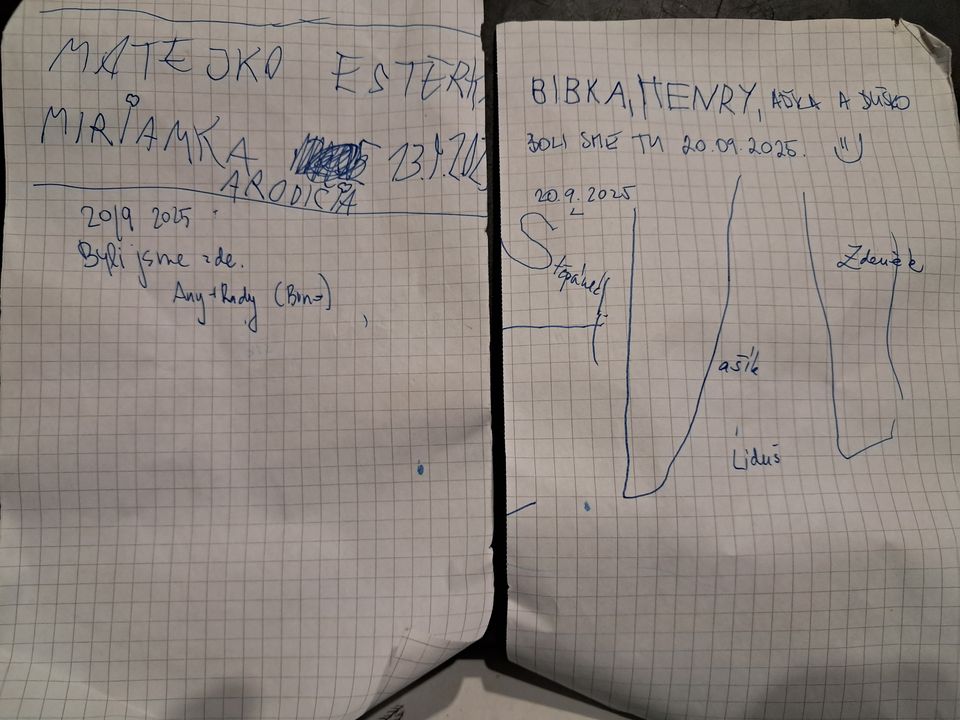 MATEJKO ESTERK
MIRIAMKA 13.9.202
A RODIČIA
20/9 2025
Byli jsme zde.
Any + Rudy
BIBKA, HENRY, AŠKA A DUŠKO
BOLI SME TU 20.09.2025.
20.9.2025
Štěpánek
Vašík
Liduš
Zdeněk